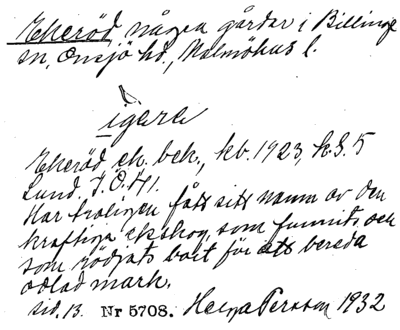 Ekeröd, några gårdar i Billinge
sn, Onsjö hd., Malmöhus l.
Ekeröd ek. beh., kb. 1923, h. S. 5
Lund.
Har troligen fått sitt namn av den
kraftiga ekskog, som funnits och
som rödjats bort för att bereda
odlad mark.
sid. 13. Nr 5708. Helga Persson 1932